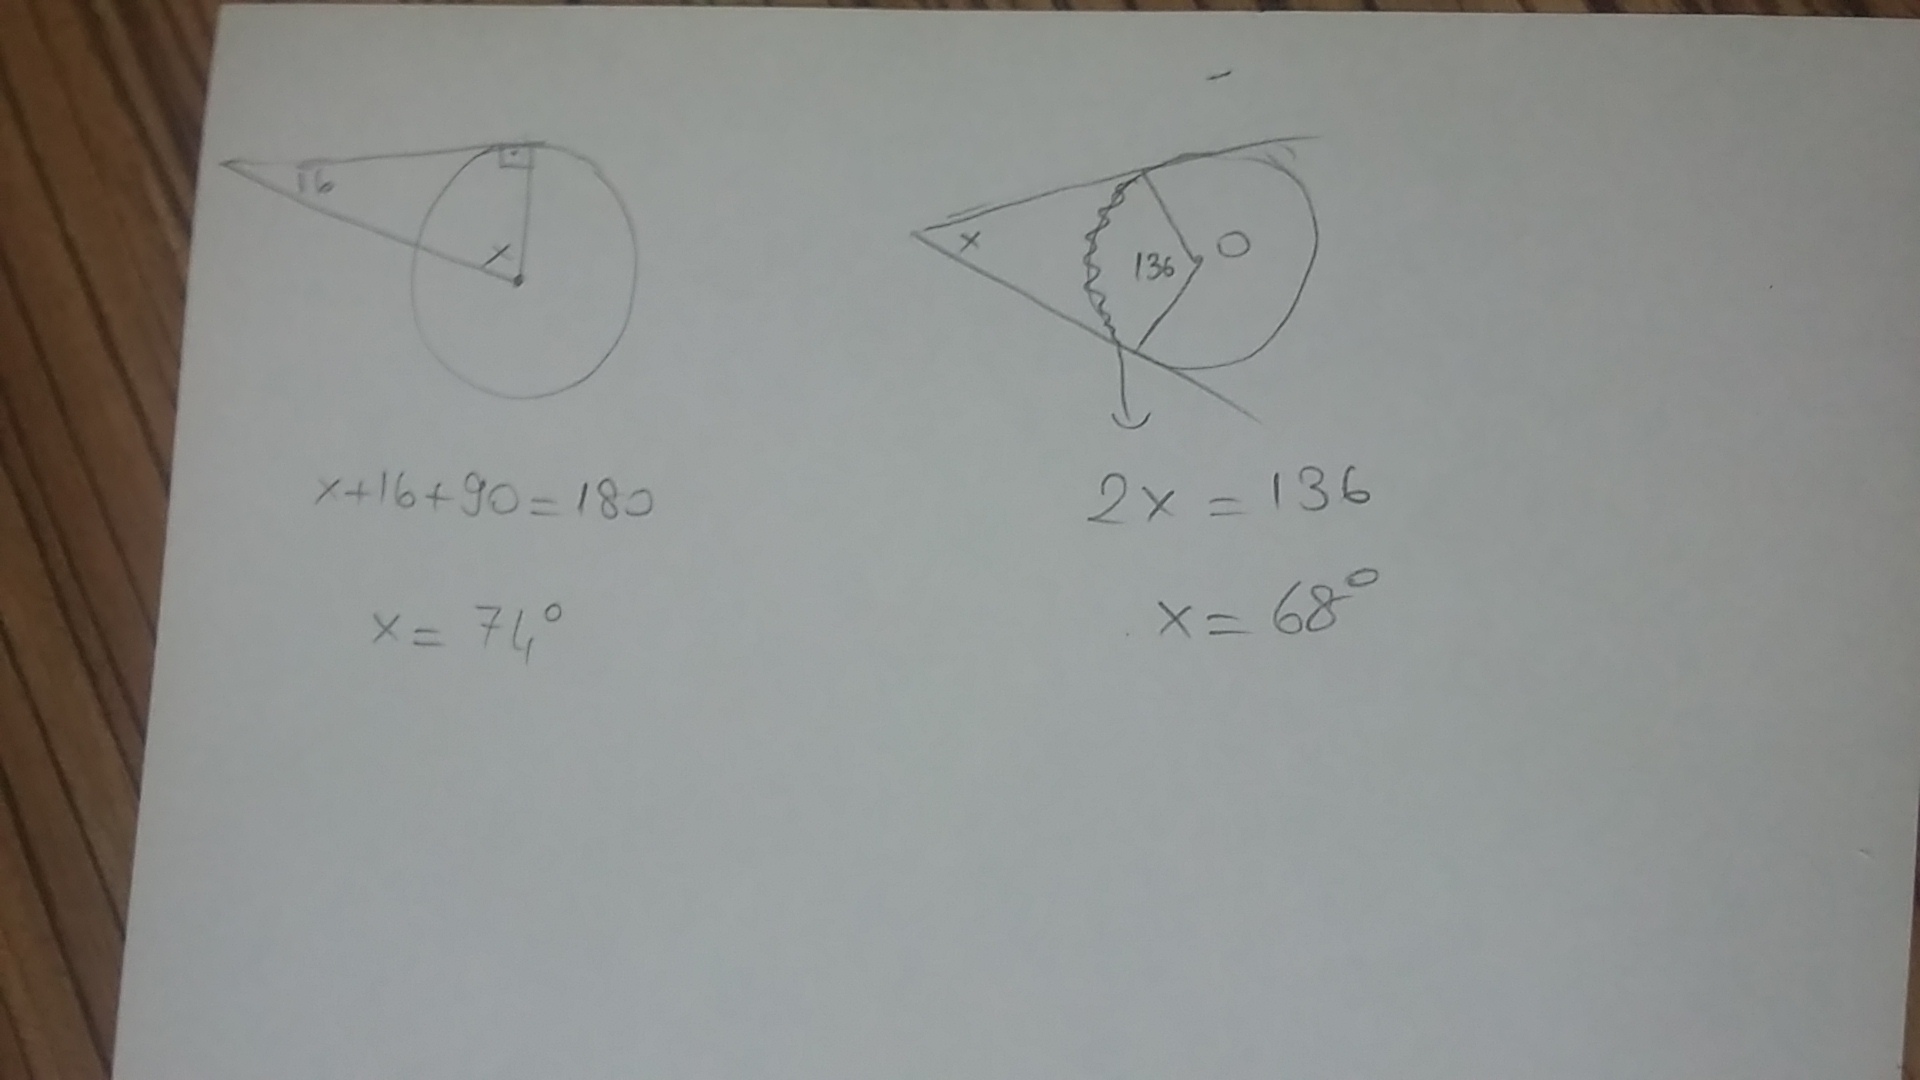 16
x
x+16+90=180
x= 74°
x
136
O
2x = 136
x= 68°